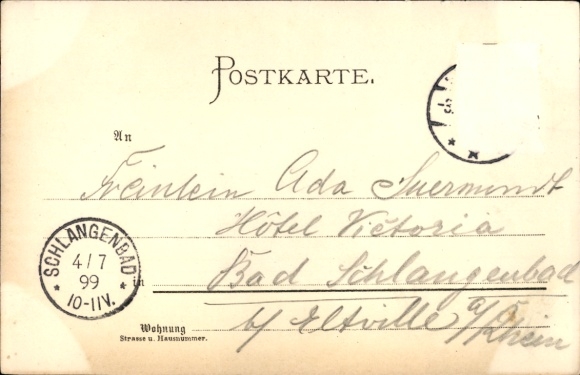 POSTKARTE.
An
Fräulein Ada Suermondt
Hôtel Victoria
SCHLANGENBAD
4/7
99
10-11V.
in Bad Schlangenbad
b/ Eltville a/Rhein
Wohnung
Strasse u. Hausnummer.